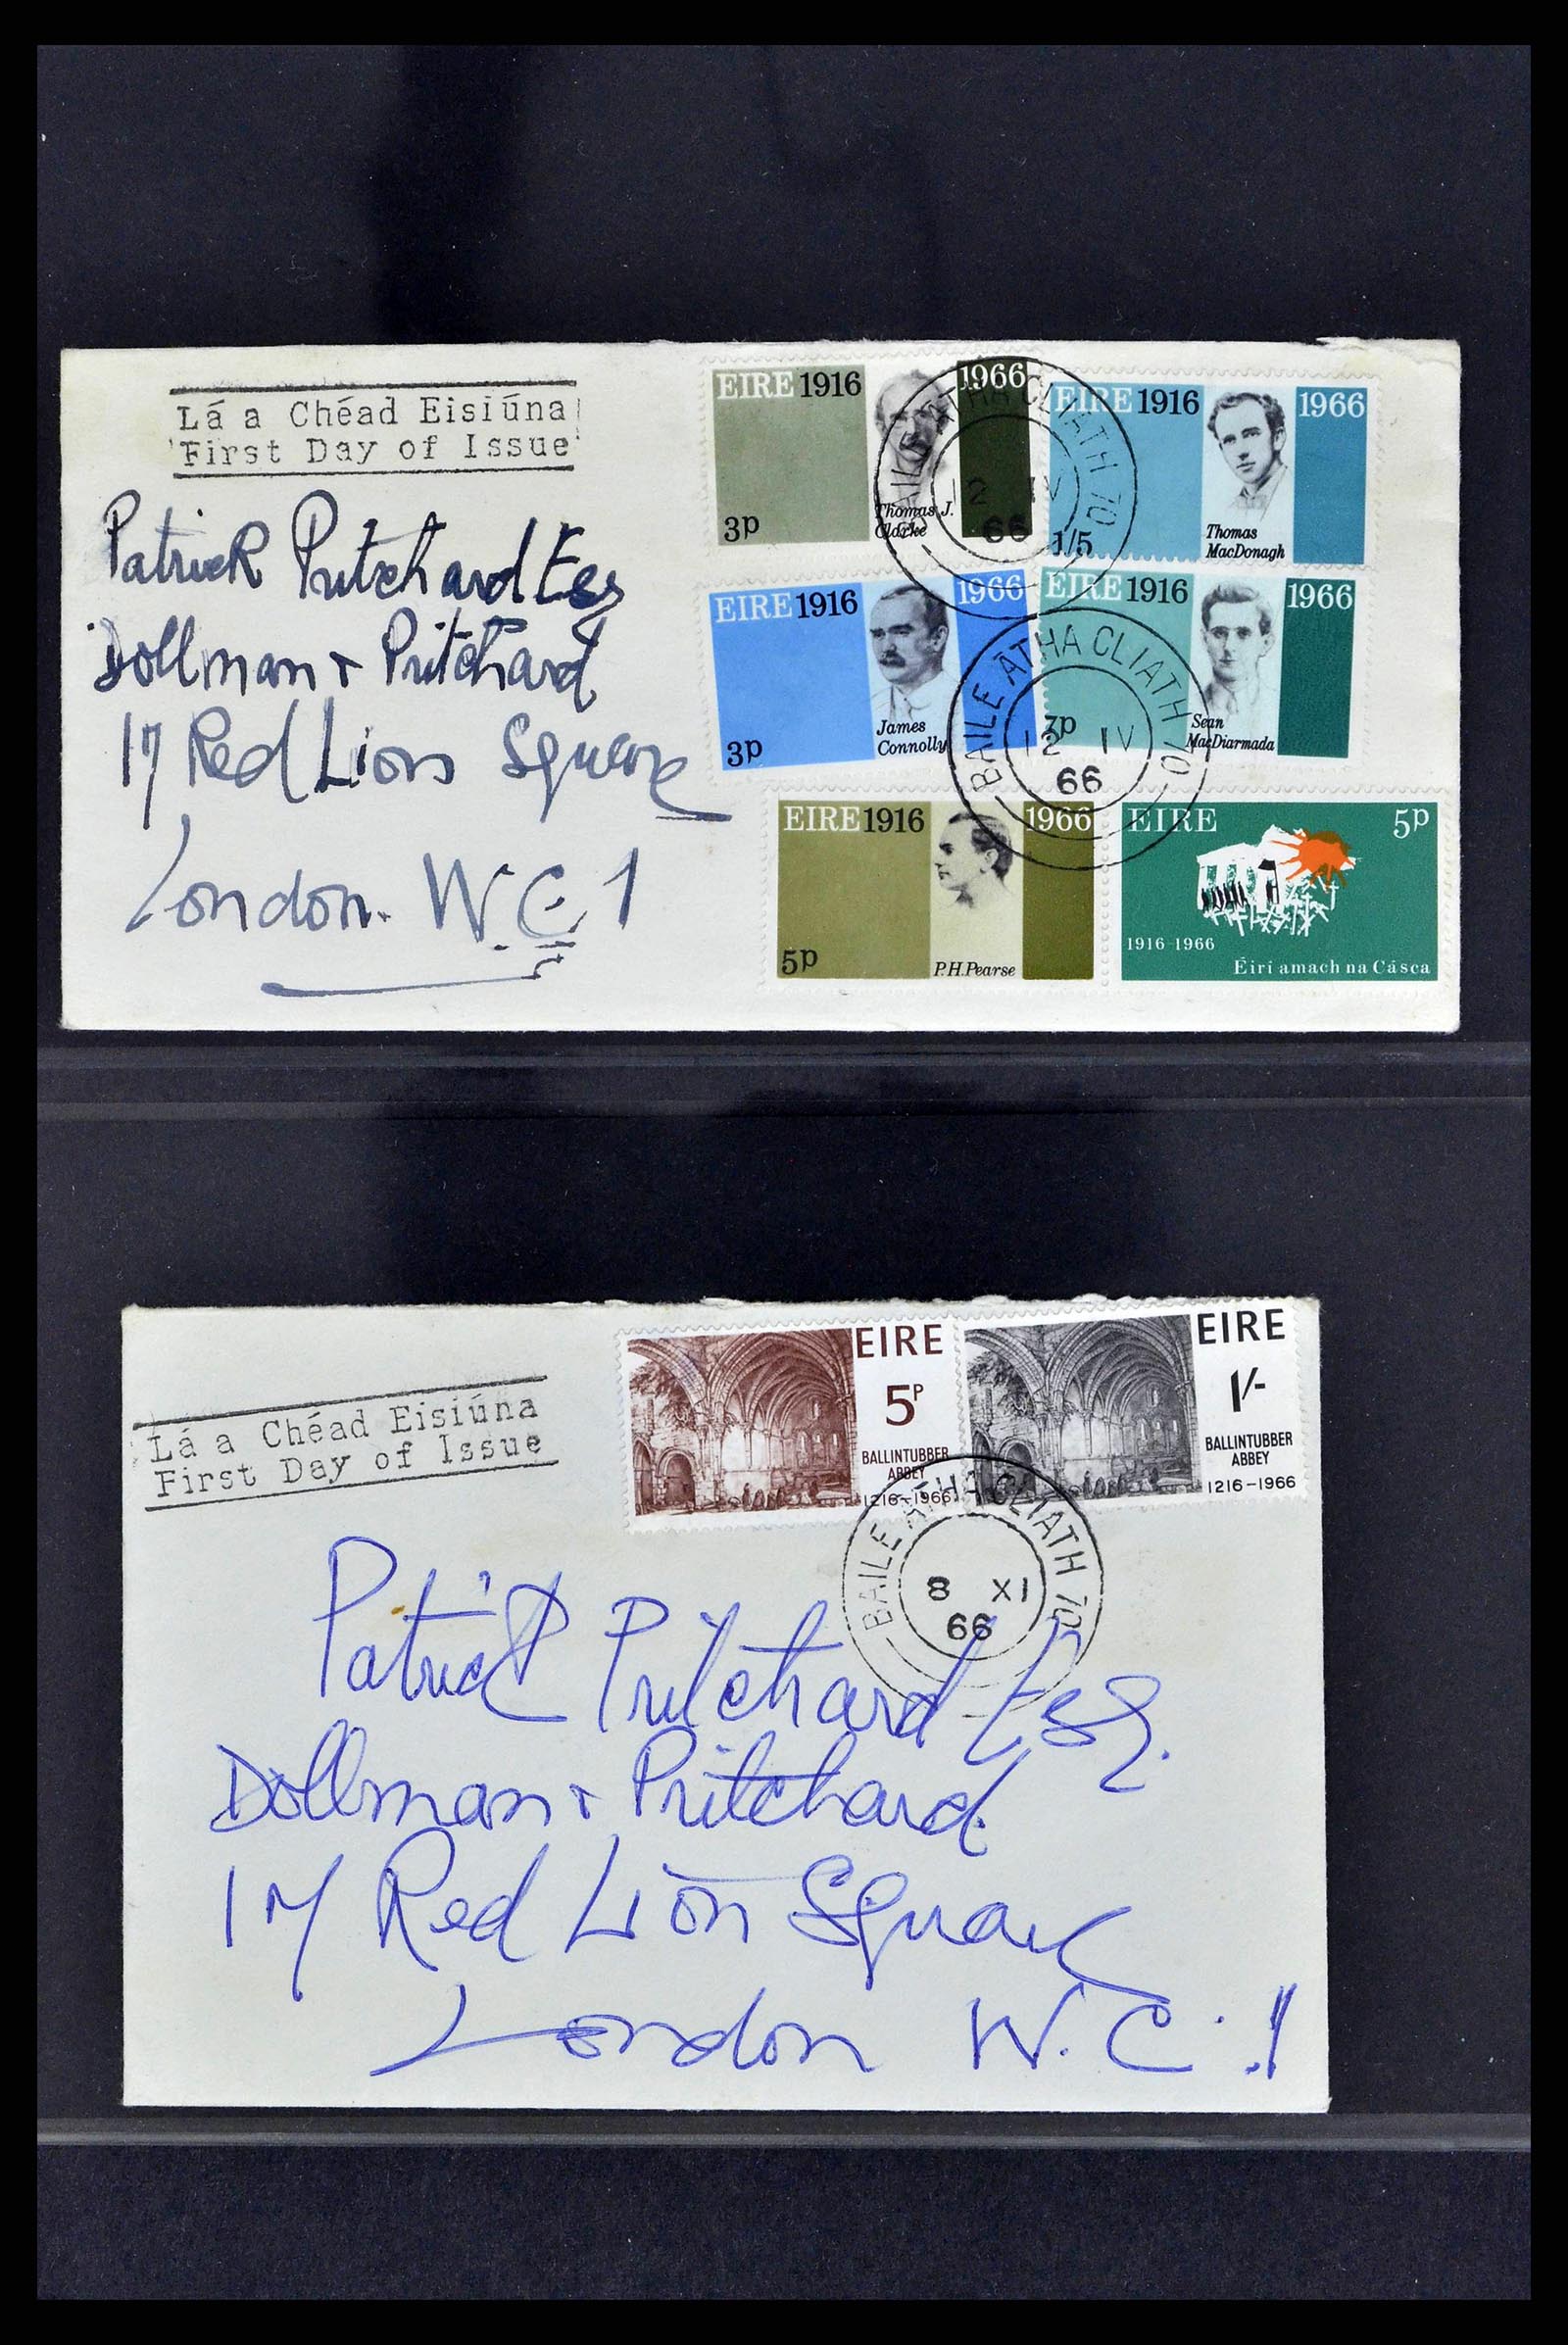 Lá a Chéad Eisiúna
First Day of Issue
Patrick Pritchard Esq
Dollman + Pritchard
17 Red Lion Square
London. W.C.1
EIRE 1916 1966
3p
Thomas J.
Clarke
EIRE 1916 1966
1/5
Thomas
MacDonagh
BAILE ÁTHA CLIATH 70
12 IV
66
EIRE 1916 1966
3p
James
Connolly
EIRE 1916 1966
3p
Sean
MacDiarmada
BAILE ÁTHA CLIATH 70
12 IV
66
EIRE 1916 1966
5p
P.H.Pearse
EIRE 5p
1916-1966
Éirí amach na Cásca
Lá a Chéad Eisiúna
First Day of Issue
EIRE
5P
BALLINTUBBER
ABBEY
1216-1966
EIRE
1/-
BALLINTUBBER
ABBEY
1216-1966
BAILE ÁTHA CLIATH 70
8 XI
66
Patrick Pritchard Esq.
Dollman + Pritchard
17 Red Lion Square
London W.C.1